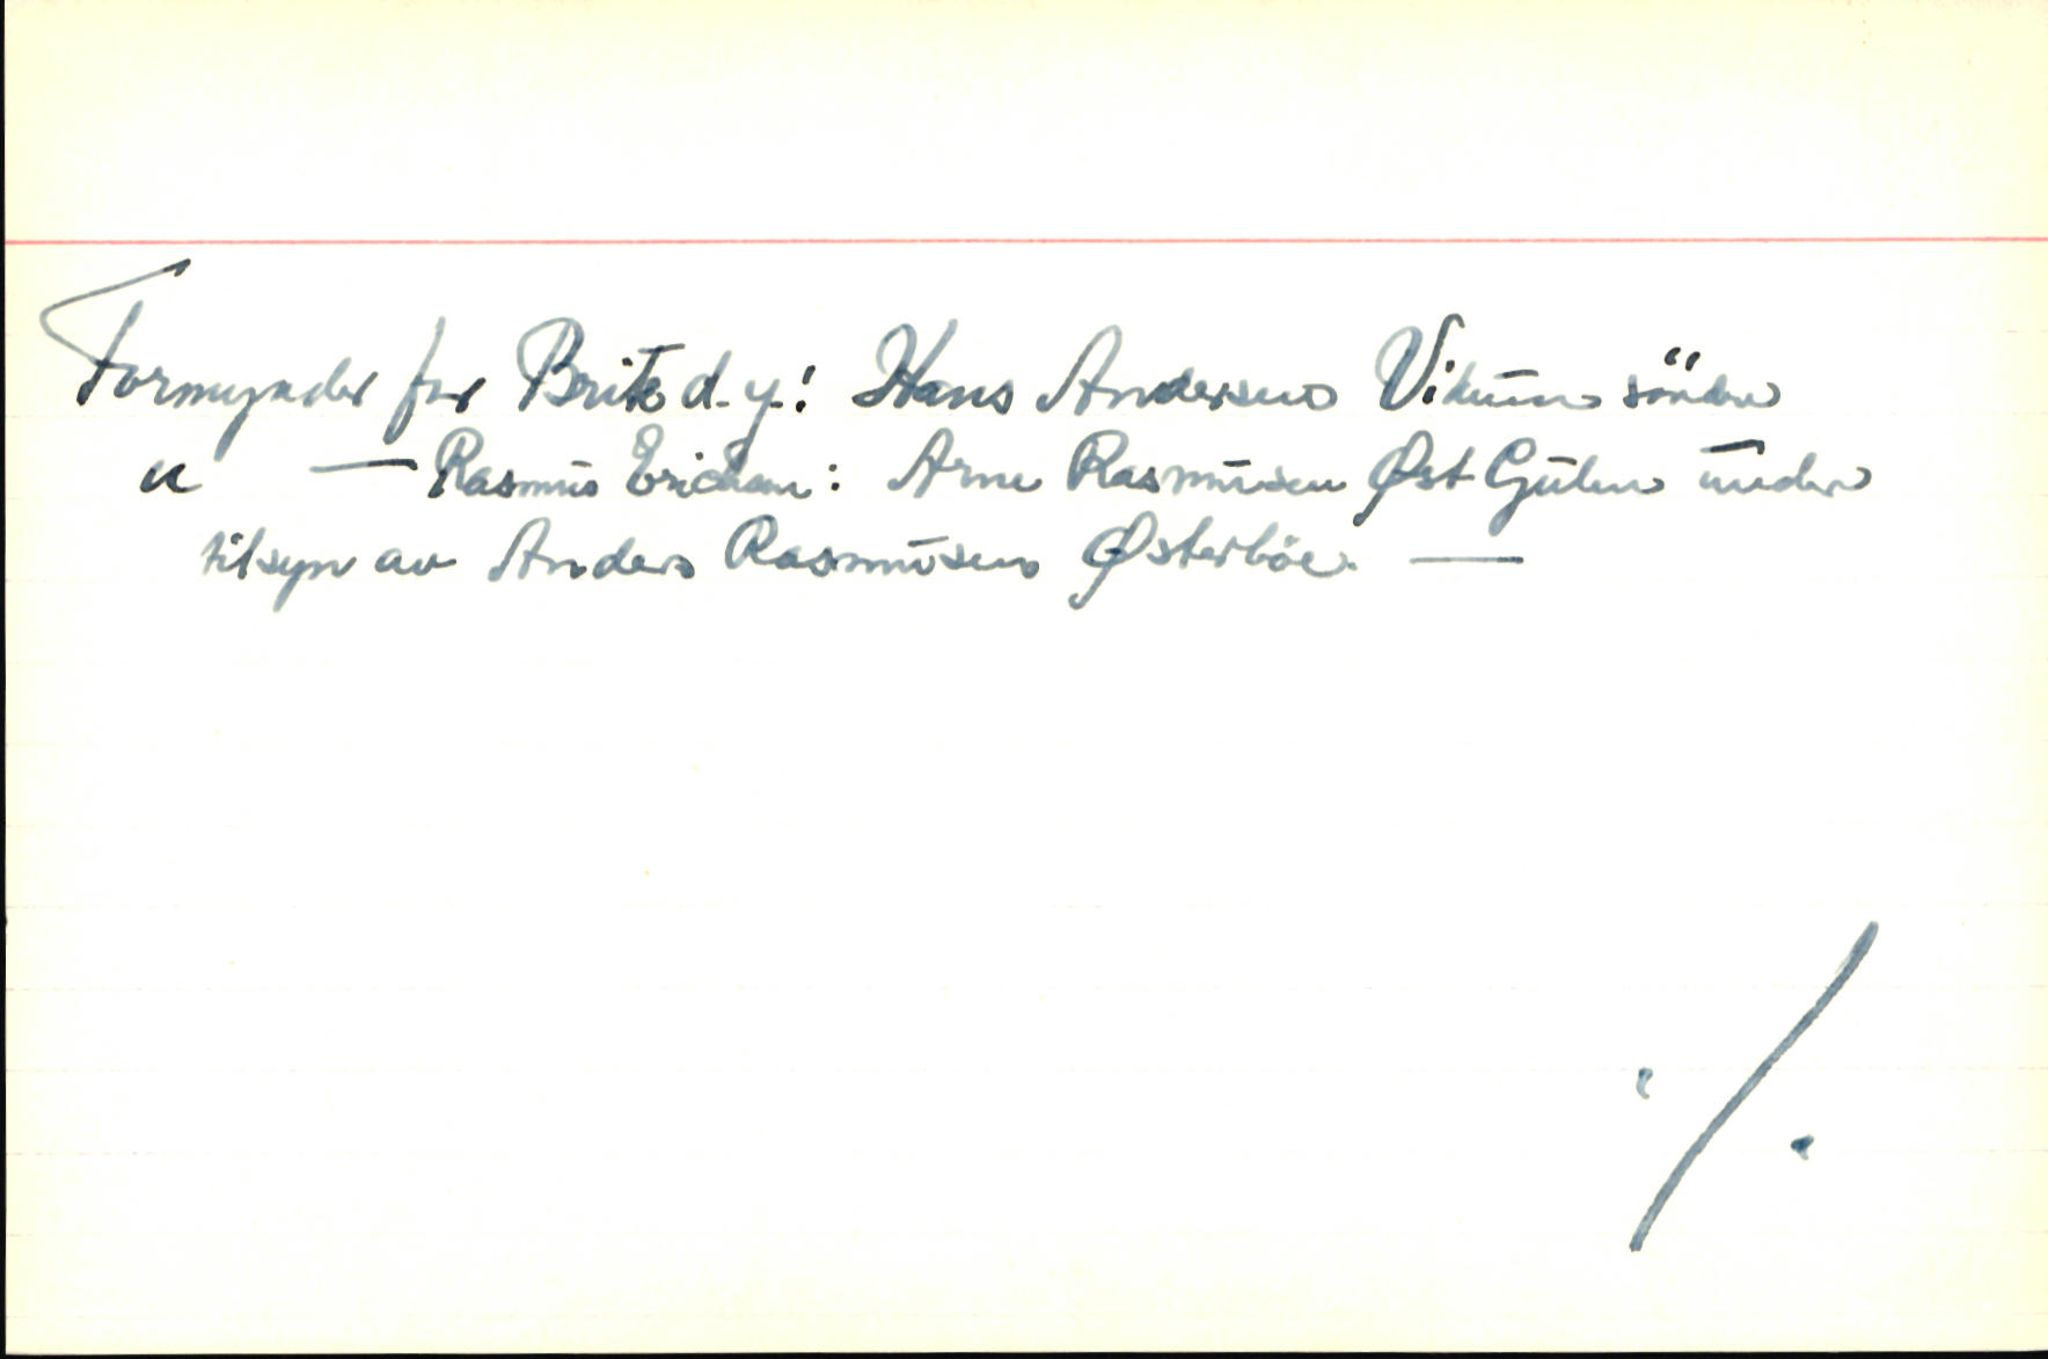 Formynder for Brite d.y.: Hans Andersen Vikum söndre
" — Rasmus Ericksen: Arne Rasmusen Øst Gulen under
tilsyn av Anders Rasmusen Østerböe. —
·/.